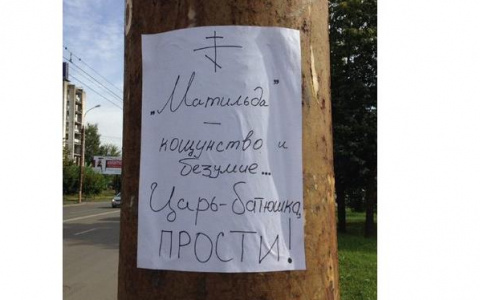 „Матильда"
–
кощунство и
безумие...
Царь-батюшка,
ПРОСТИ!